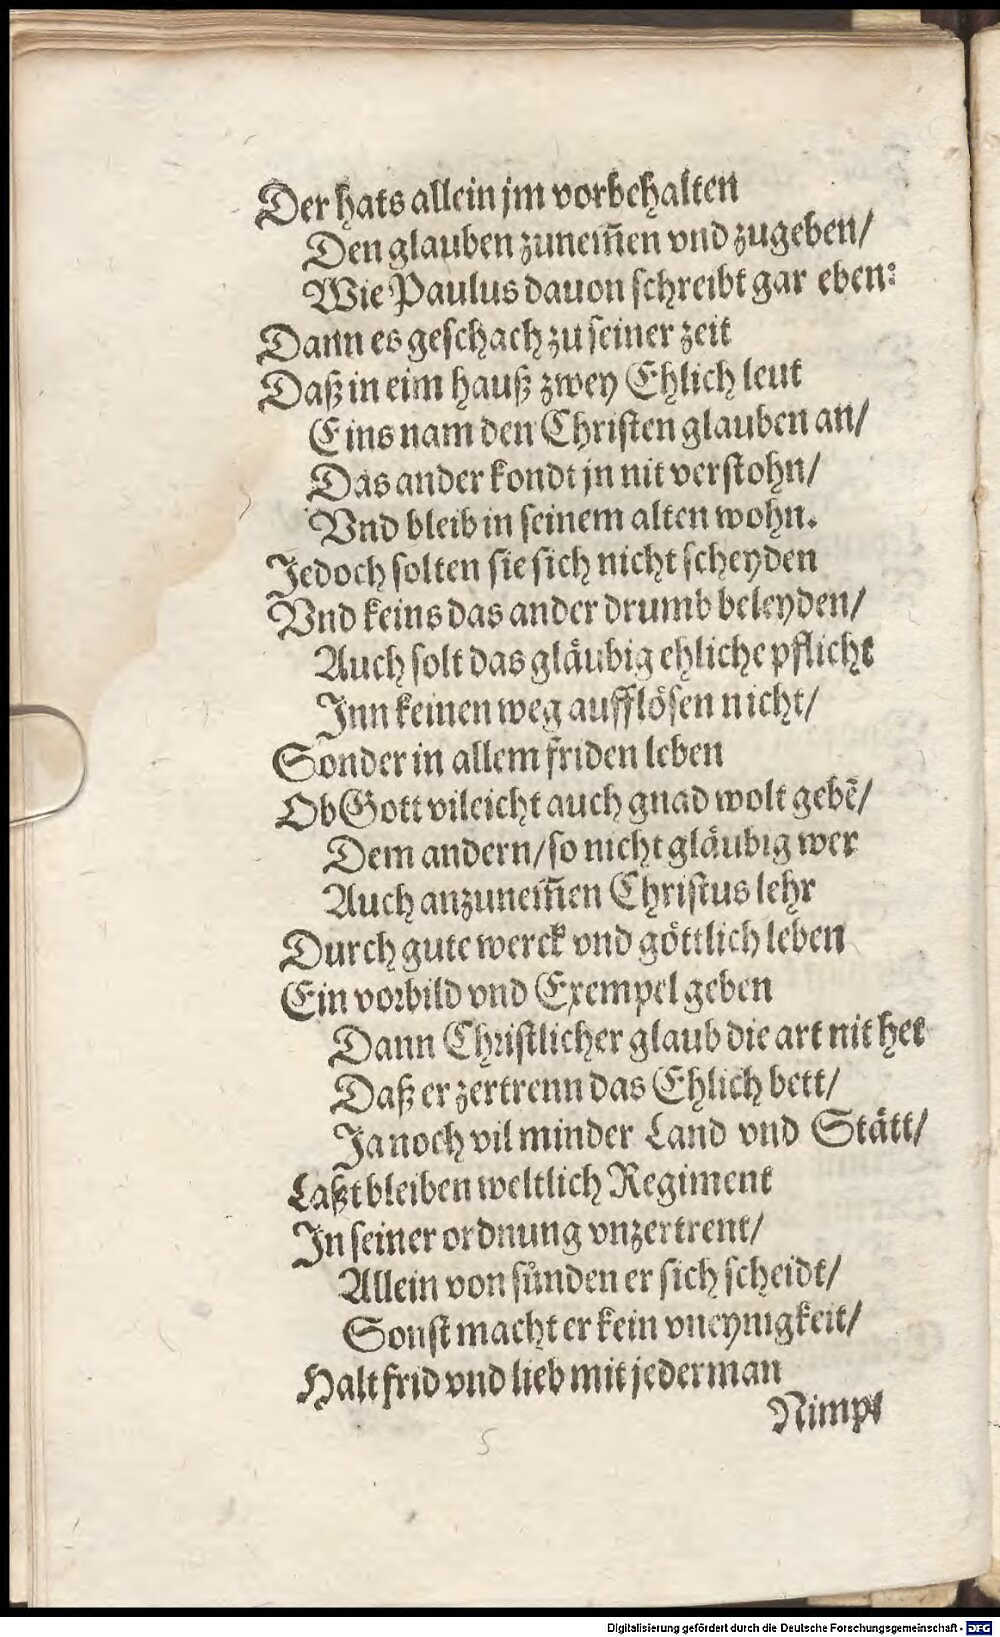 Der hats allein jm vorbehalten
Den glauben zunem̃en vnd zugeben/
Wie Paulus dauon schreibt gar eben:
Dann es geschach zu seiner zeit
Daß in eim hauß zwey Ehlich leut
Eins nam den Christen glauben an/
Das ander kondt jn nit verstohn/
Vnd bleib in seinem alten wohn.
Jedoch solten sie sich nicht scheyden
Vnd keins das ander drumb beleyden/
Auch solt das glaͤubig ehliche pflicht
Jnn keinen weg aufflöͤsen nicht/
Sonder in allem friden leben
Ob Gott vileicht auch gnad wolt gebẽ/
Dem andern/ so nicht glaͤubig wer
Auch anzunem̃en Christus lehr
Durch gute werck vnd goͤttlich leben
Ein vorbild vnd Exempel geben
Dann Christlicher glaub die art nit het
Daß er zertrenn das Ehlich bett/
Ja noch vil minder Land vnd Staͤtt/
Laßt bleiben weltlich Regiment
Jn seiner ordnung vnzertrent/
Allein von suͤnden er sich scheidt/
Sonst macht er kein vneynigkeit/
Halt frid vnd lieb mit jederman
Nimpt
Digitalisierung gefördert durch die Deutsche Forschungsgemeinschaft - DFG